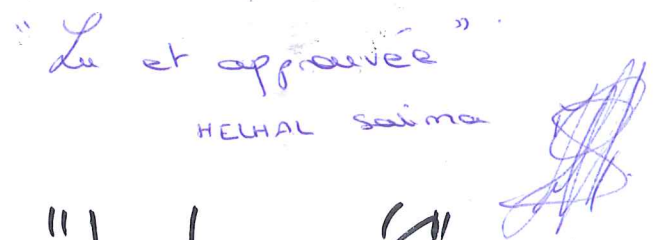 "Lu et approuvée"
HELHAL Saima